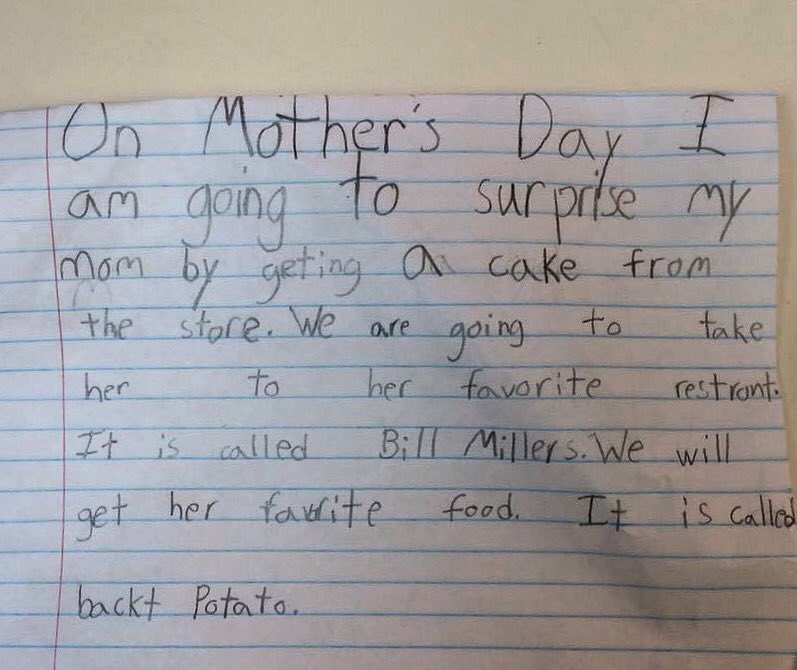 On Mother's Day I
am going to surprise my
mom by geting a cake from
the store. We are going to take
her to her favorite restront.
It is called Bill Millers. We will
get her favrite food. It is called
backt Potato.